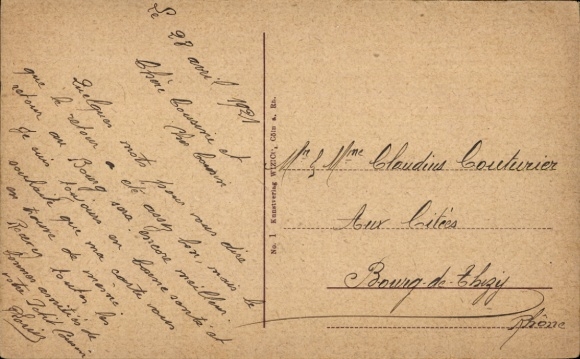 Le 28 avril 1921
Chère Cousine et
Cher Cousin
Quelques mots pour vous dire
que le retour a été assez bon, mais le
retour au Bourg sera encore meilleur.
Je suis toujours en bonne santé et
souhaite que ma carte vous
en trouve de même.
Recevez toutes les
bonnes amitiés de
votre Cousin
No. 1 Kunstverlag WIZICo, Côln a. Rn.
Mr & Mme Claudius Couturier
Aux Citées
Bourg-de-Thizy
Rhône